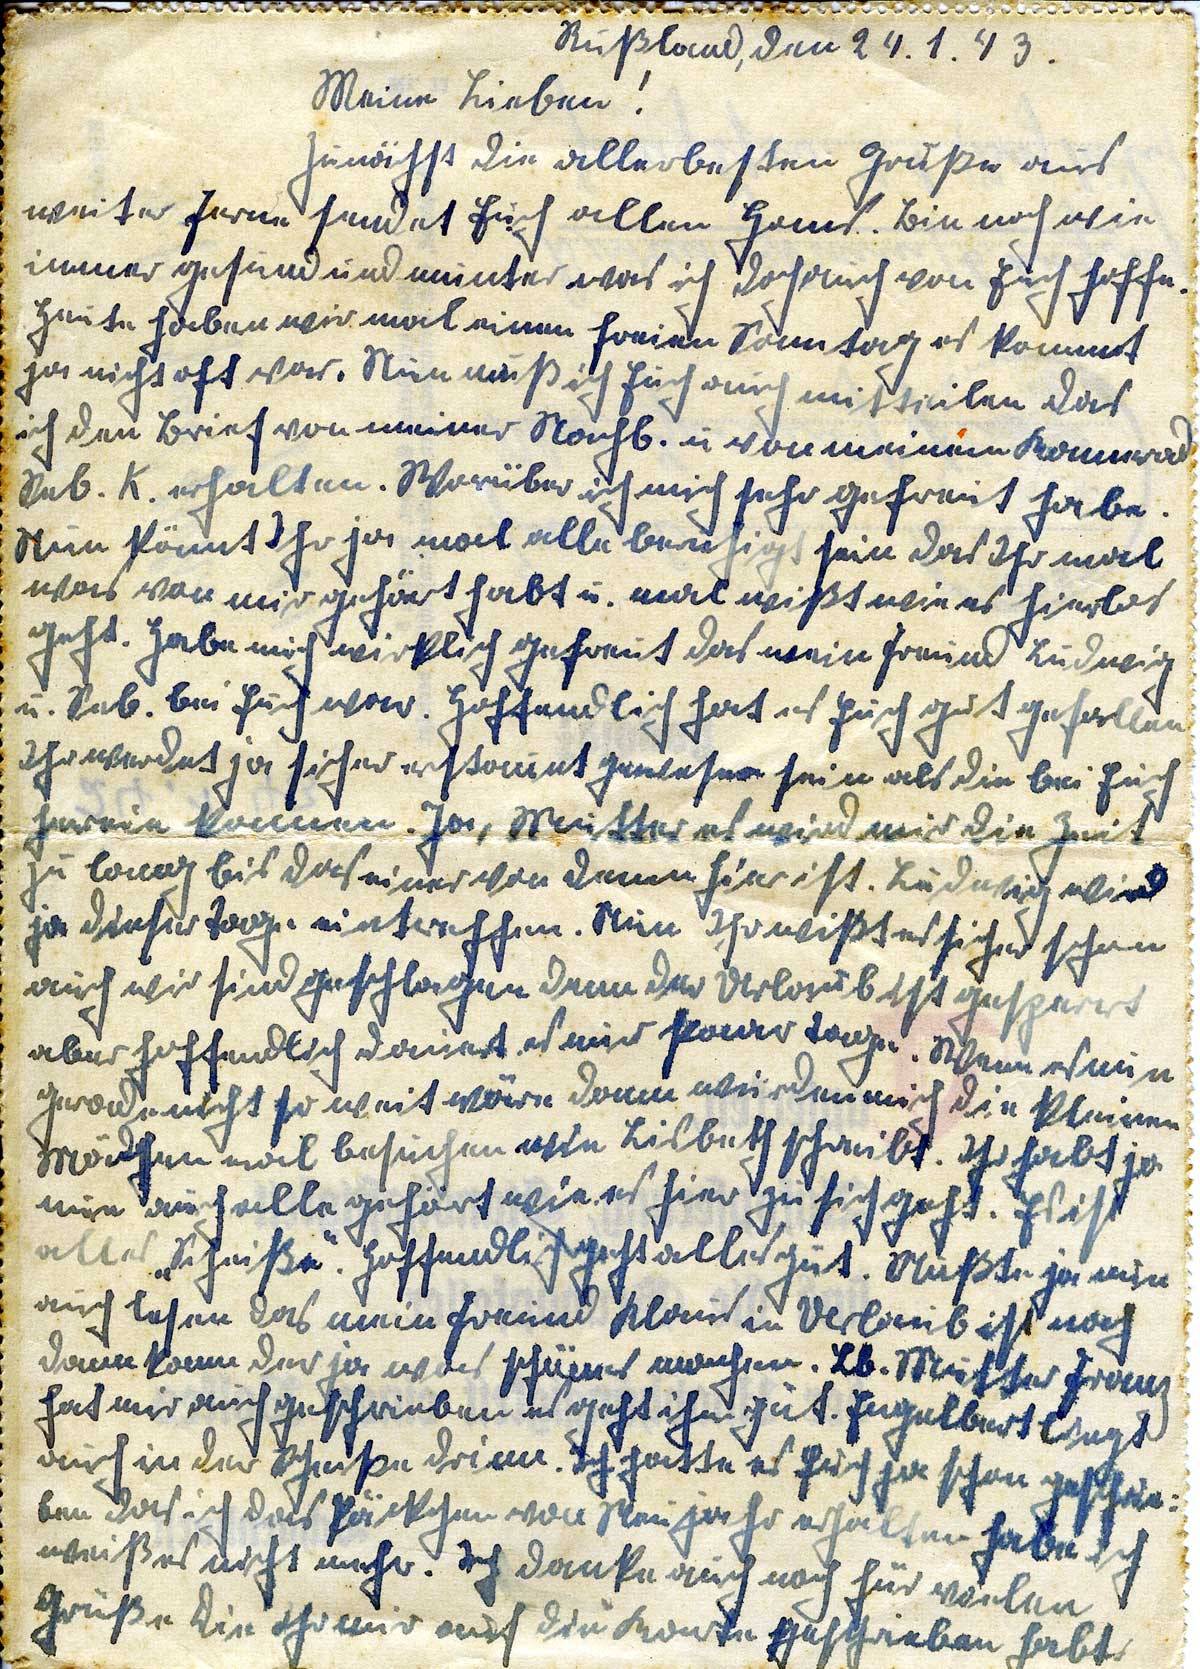 Rußland, den 24.1.43.
Meine Lieben!
Zunächst die allerbesten Grüße aus
weiter Ferne sendet Euch allen Hans. Bin noch wie
immer gesund und munter was ich doch auch von Euch hoffe.
Heute haben wir mal einen freien Sonntag es kommt
ja nicht oft vor. Nun muß ich Euch auch mitteilen das
ich den Brief von meiner Nachb. u von meinem Kamerad
Seb. K. erhalten. Worüber ich mich sehr gefreut habe.
Nun könnt Ihr ja mal alle beruhigt sein das Ihr mal
was von mir gehört habt u. mal wißt wie es hier los
geht. Habe mich wirklich gefreut das mein Freund Ludwig
u. Seb. bei Euch war. Hoffendlich hat es Euch gut gefallen
Ihr werdet ja sicher erstaunt gewesen sein als die bei Euch
herein kommen. Ja, Mutter es wird mir die Zeit
zu lang bis das einer von denen hier ist. Ludwig wird
ja dieser Tage eintreffen. Nun Ihr wißt es sicher schon
auch wir sind geschlagen denn der Urlaub ist gesperrt
aber hoffendlich dauert es nur paar Tage. Wenn es nun
gerade nicht so weit wäre dann würden mich die kleinen
Mädchen mal besuchen wie Lisbeth schreibt. Ihr habt ja
nun auch alle gehört wie es hier zu sich geht. Es ist
alles „Scheiße“. Hoffendlich geht alles gut. Mußte ja nun
auch lesen das mein Freund Klaus in Urlaub ist noch
dann kann der ja was schönes machen. Lb. Mutter Franz
hat mir auch geschrieben es geht ihm gut. Engelbert liegt
auch in der Scheiße drinn. Ich hatte es Euch ja schon geschrie-
ben das ich das Päckchen von Neujahr erhalten habe ich
weiß es nicht mehr. Ich danke auch noch für vielen
Grüße die Ihr mir auf die Karte geschrieben habt.